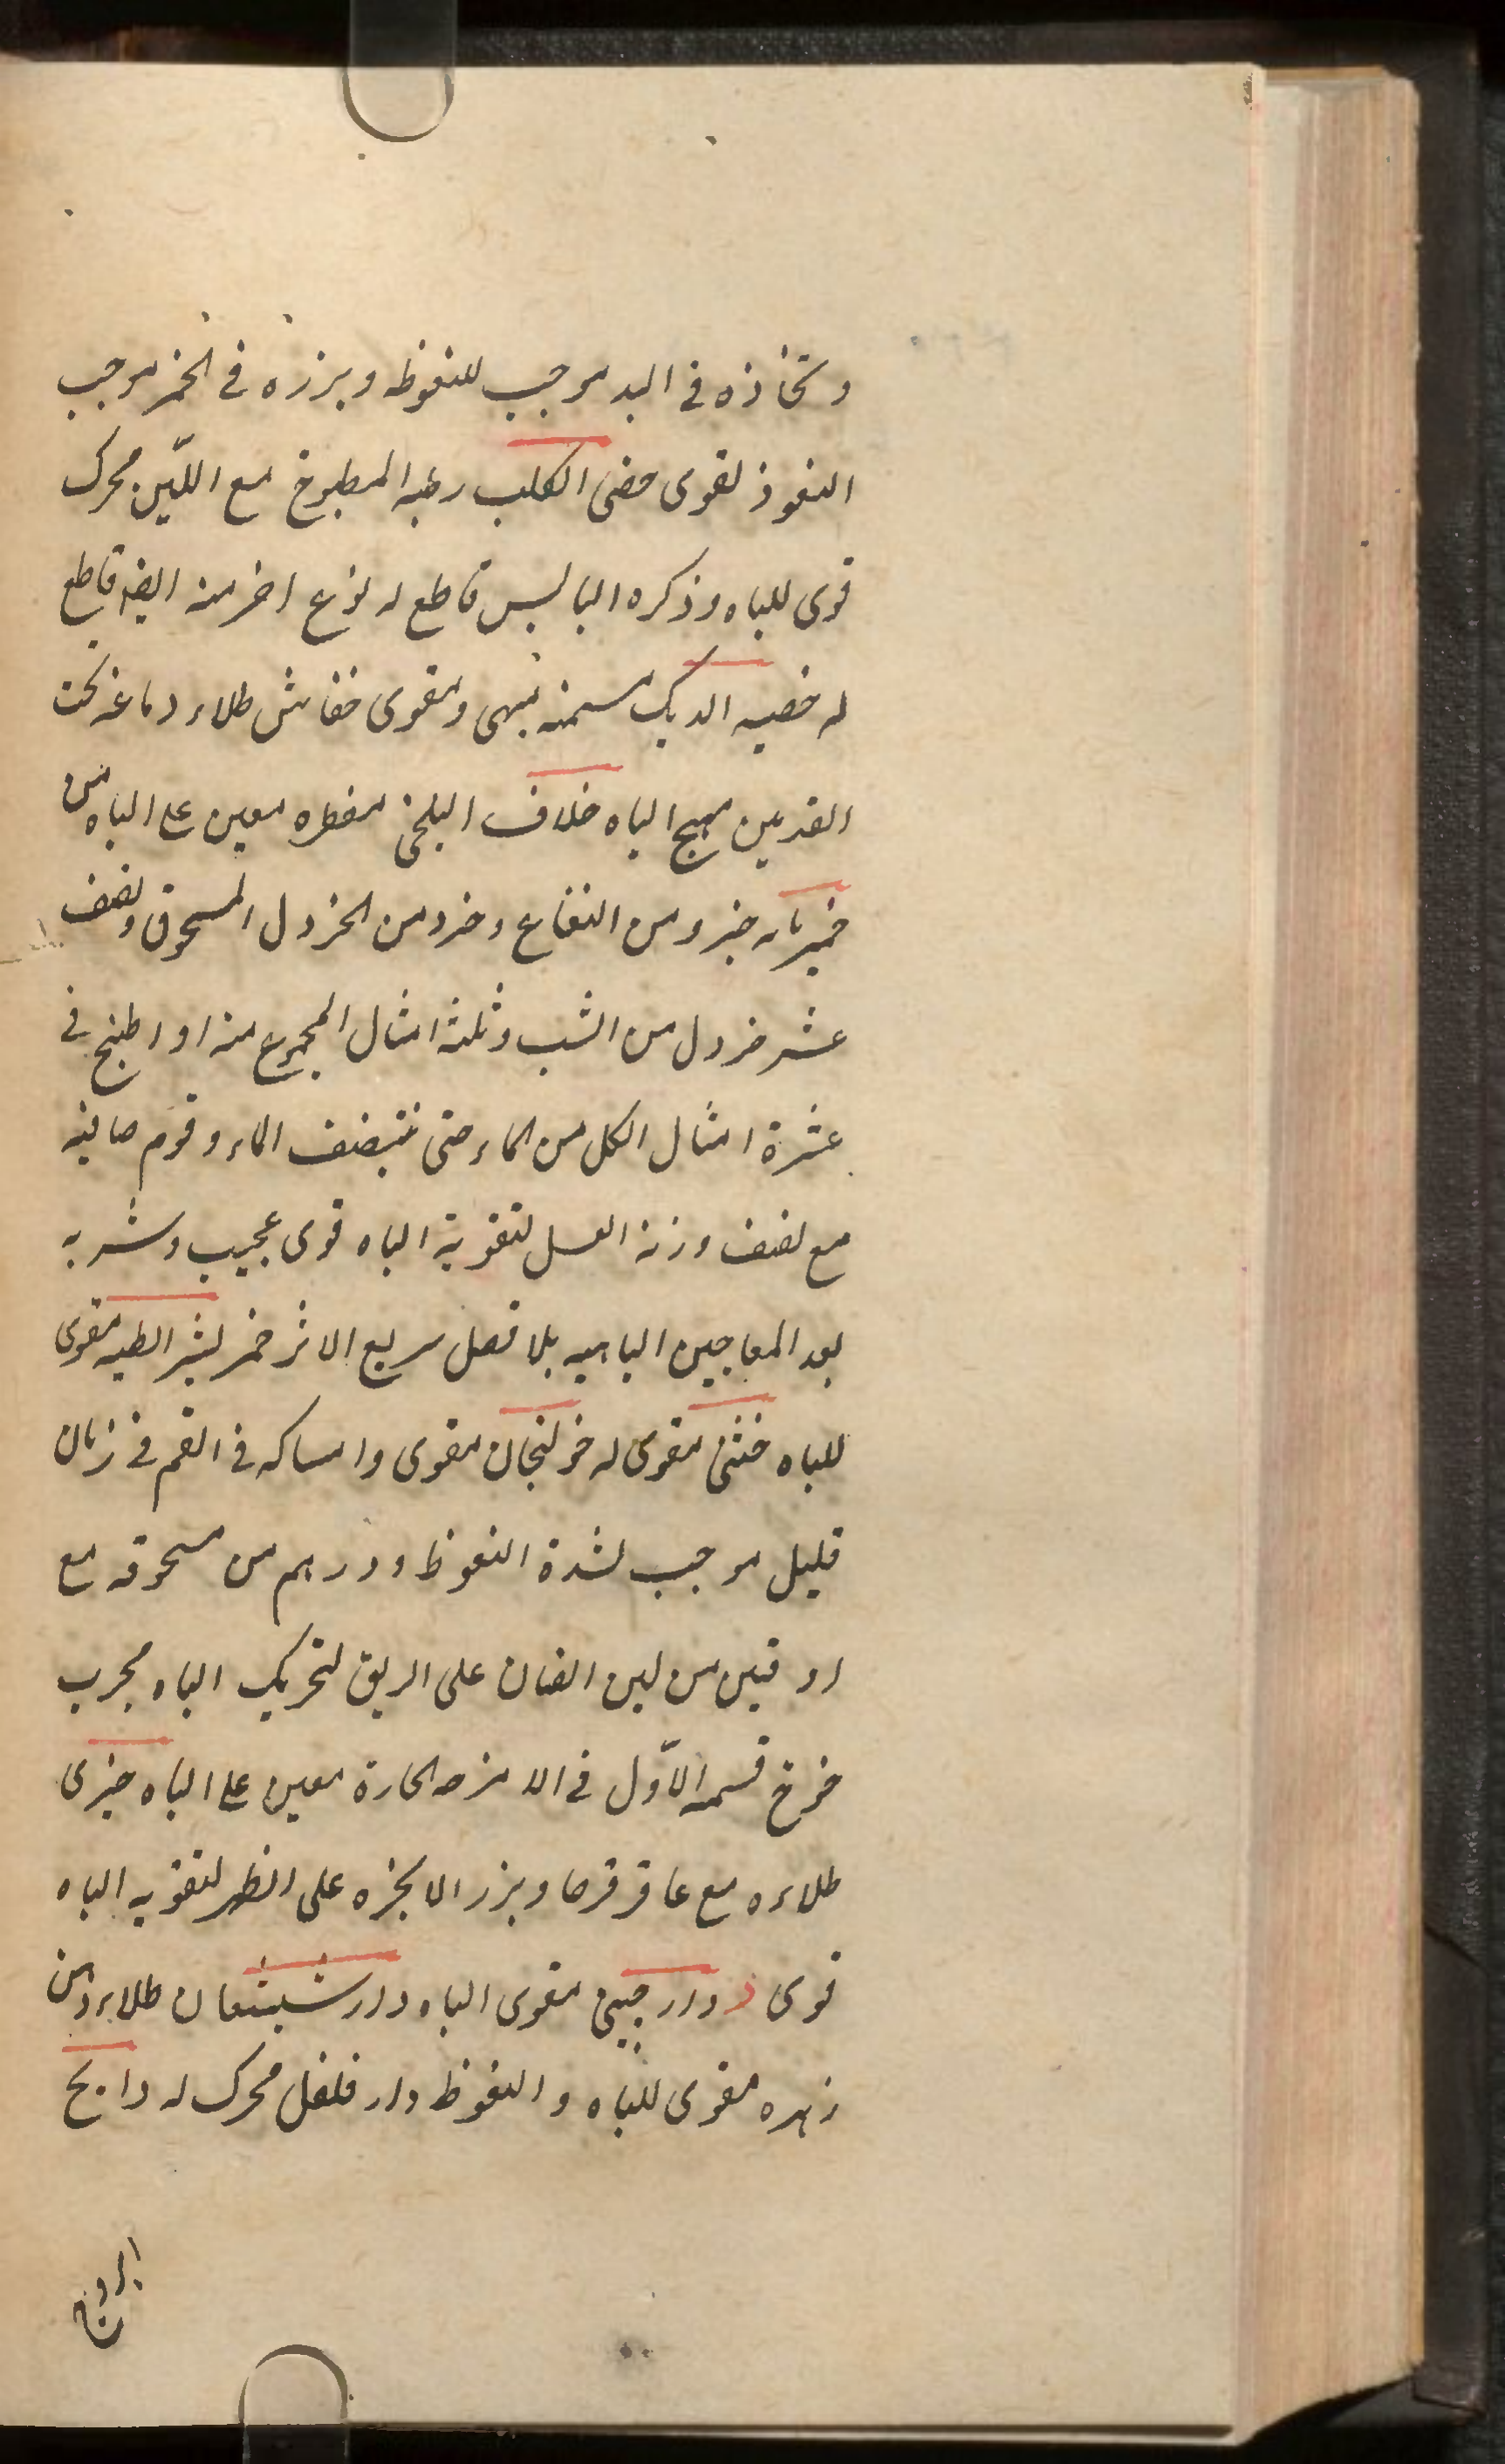 واتخاذه فى اليد موجب للنغوظه وبزره فى الخمر موجب
النغوذ لقوى خصى الكلب رطبه المطبوخ مع اللّبن محرك
قوى للباه وذكره اليابس قاطع له نوع اخر منه ايضا قاطع
له خصيه الديك مسمنه مبهى ومقوى خفاش طلاء دماغه تحت
القدمين مهيج الباه خلاف البلخى مفطره معين على الباه من
خميرمايه جزو من النعناع وجزو من الخردل المسحوق ونصف
عشر خردل من الشب وثلثة امثال المجموع منه او اطبخ فى
عشرة امثال الكل من الماء حتى ينتصف الماء وقوم صافيه
مع نصف وزنه العسل لتقوية الباه قوى عجيب وشربه
بعد المعاجين الباهيه بلا فصل سريع الاثر خمر بشرائطه مقوى
للباه خنثى مقوى له خولنجان مقوى وامساكه فى الفم فى زمان
قليل موجب لشدة النغوظ ودرهم من مسحوقه مع
اوقيتين من لبن الضان على الريق لتحريك الباه مجرب
خوخ قسمه الاّول فى الامزجه الحارة معين على الباه خيرى
طلاءه مع عاقرقرحا وبزر الانجره على الظهر لتقويه الباه
قوى د دارچينى مقوى الباه دارشيشعان طلاء دهن
زهره مقوى للباه والنغوظ دار فلفل محرك له دابح